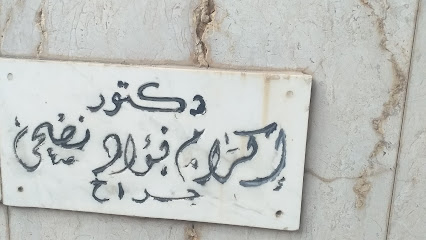 دكتور
إكرام فؤاد نصحى
جراح